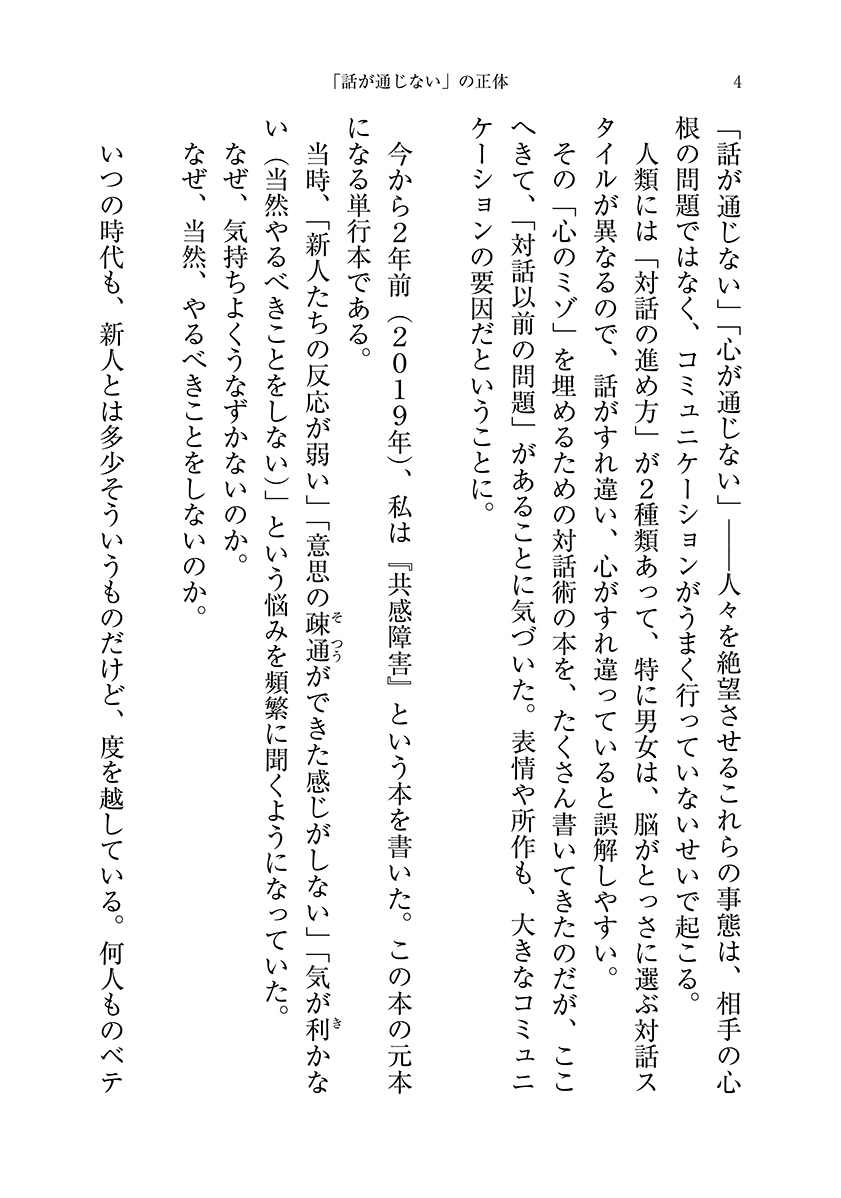 「話が通じない」の正体
4
「話が通じない」「心が通じない」――人々を絶望させるこれらの事態は、相手の心
根の問題ではなく、コミュニケーションがうまく行っていないせいで起こる。
人類には「対話の進め方」が2種類あって、特に男女は、脳がとっさに選ぶ対話ス
タイルが異なるので、話がすれ違い、心がすれ違っていると誤解しやすい。
その「心のミゾ」を埋めるための対話術の本を、たくさん書いてきたのだが、ここ
へきて、「対話以前の問題」があることに気づいた。表情や所作も、大きなコミュニ
ケーションの要因だということに。
今から2年前（2019年）、私は『共感障害』という本を書いた。この本の元本
になる単行本である。
当時、「新人たちの反応が弱い」「意思の疎通ができた感じがしない」「気が利かな
そ つう
き
い（当然やるべきことをしない）」という悩みを頻繁に聞くようになっていた。
なぜ、気持ちよくうなずかないのか。
なぜ、当然、やるべきことをしないのか。
いつの時代も、新人とは多少そういうものだけど、度を越している。何人ものベテ